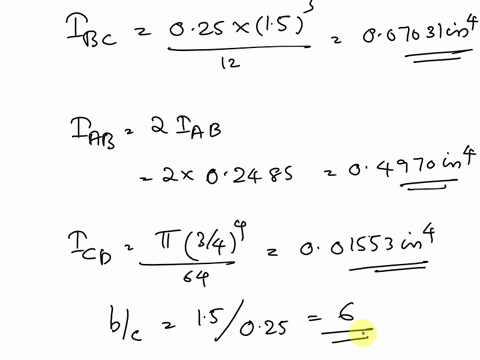 I_BC = 0.25 × (1.5)^3 / 12 = 0.07031 in^4
I_AB = 2 I_AB
= 2 × 0.2485 = 0.4970 in^4
I_CD = π (3/4)^4 / 64 = 0.01553 in^4
b/c = 1.5/0.25 = 6